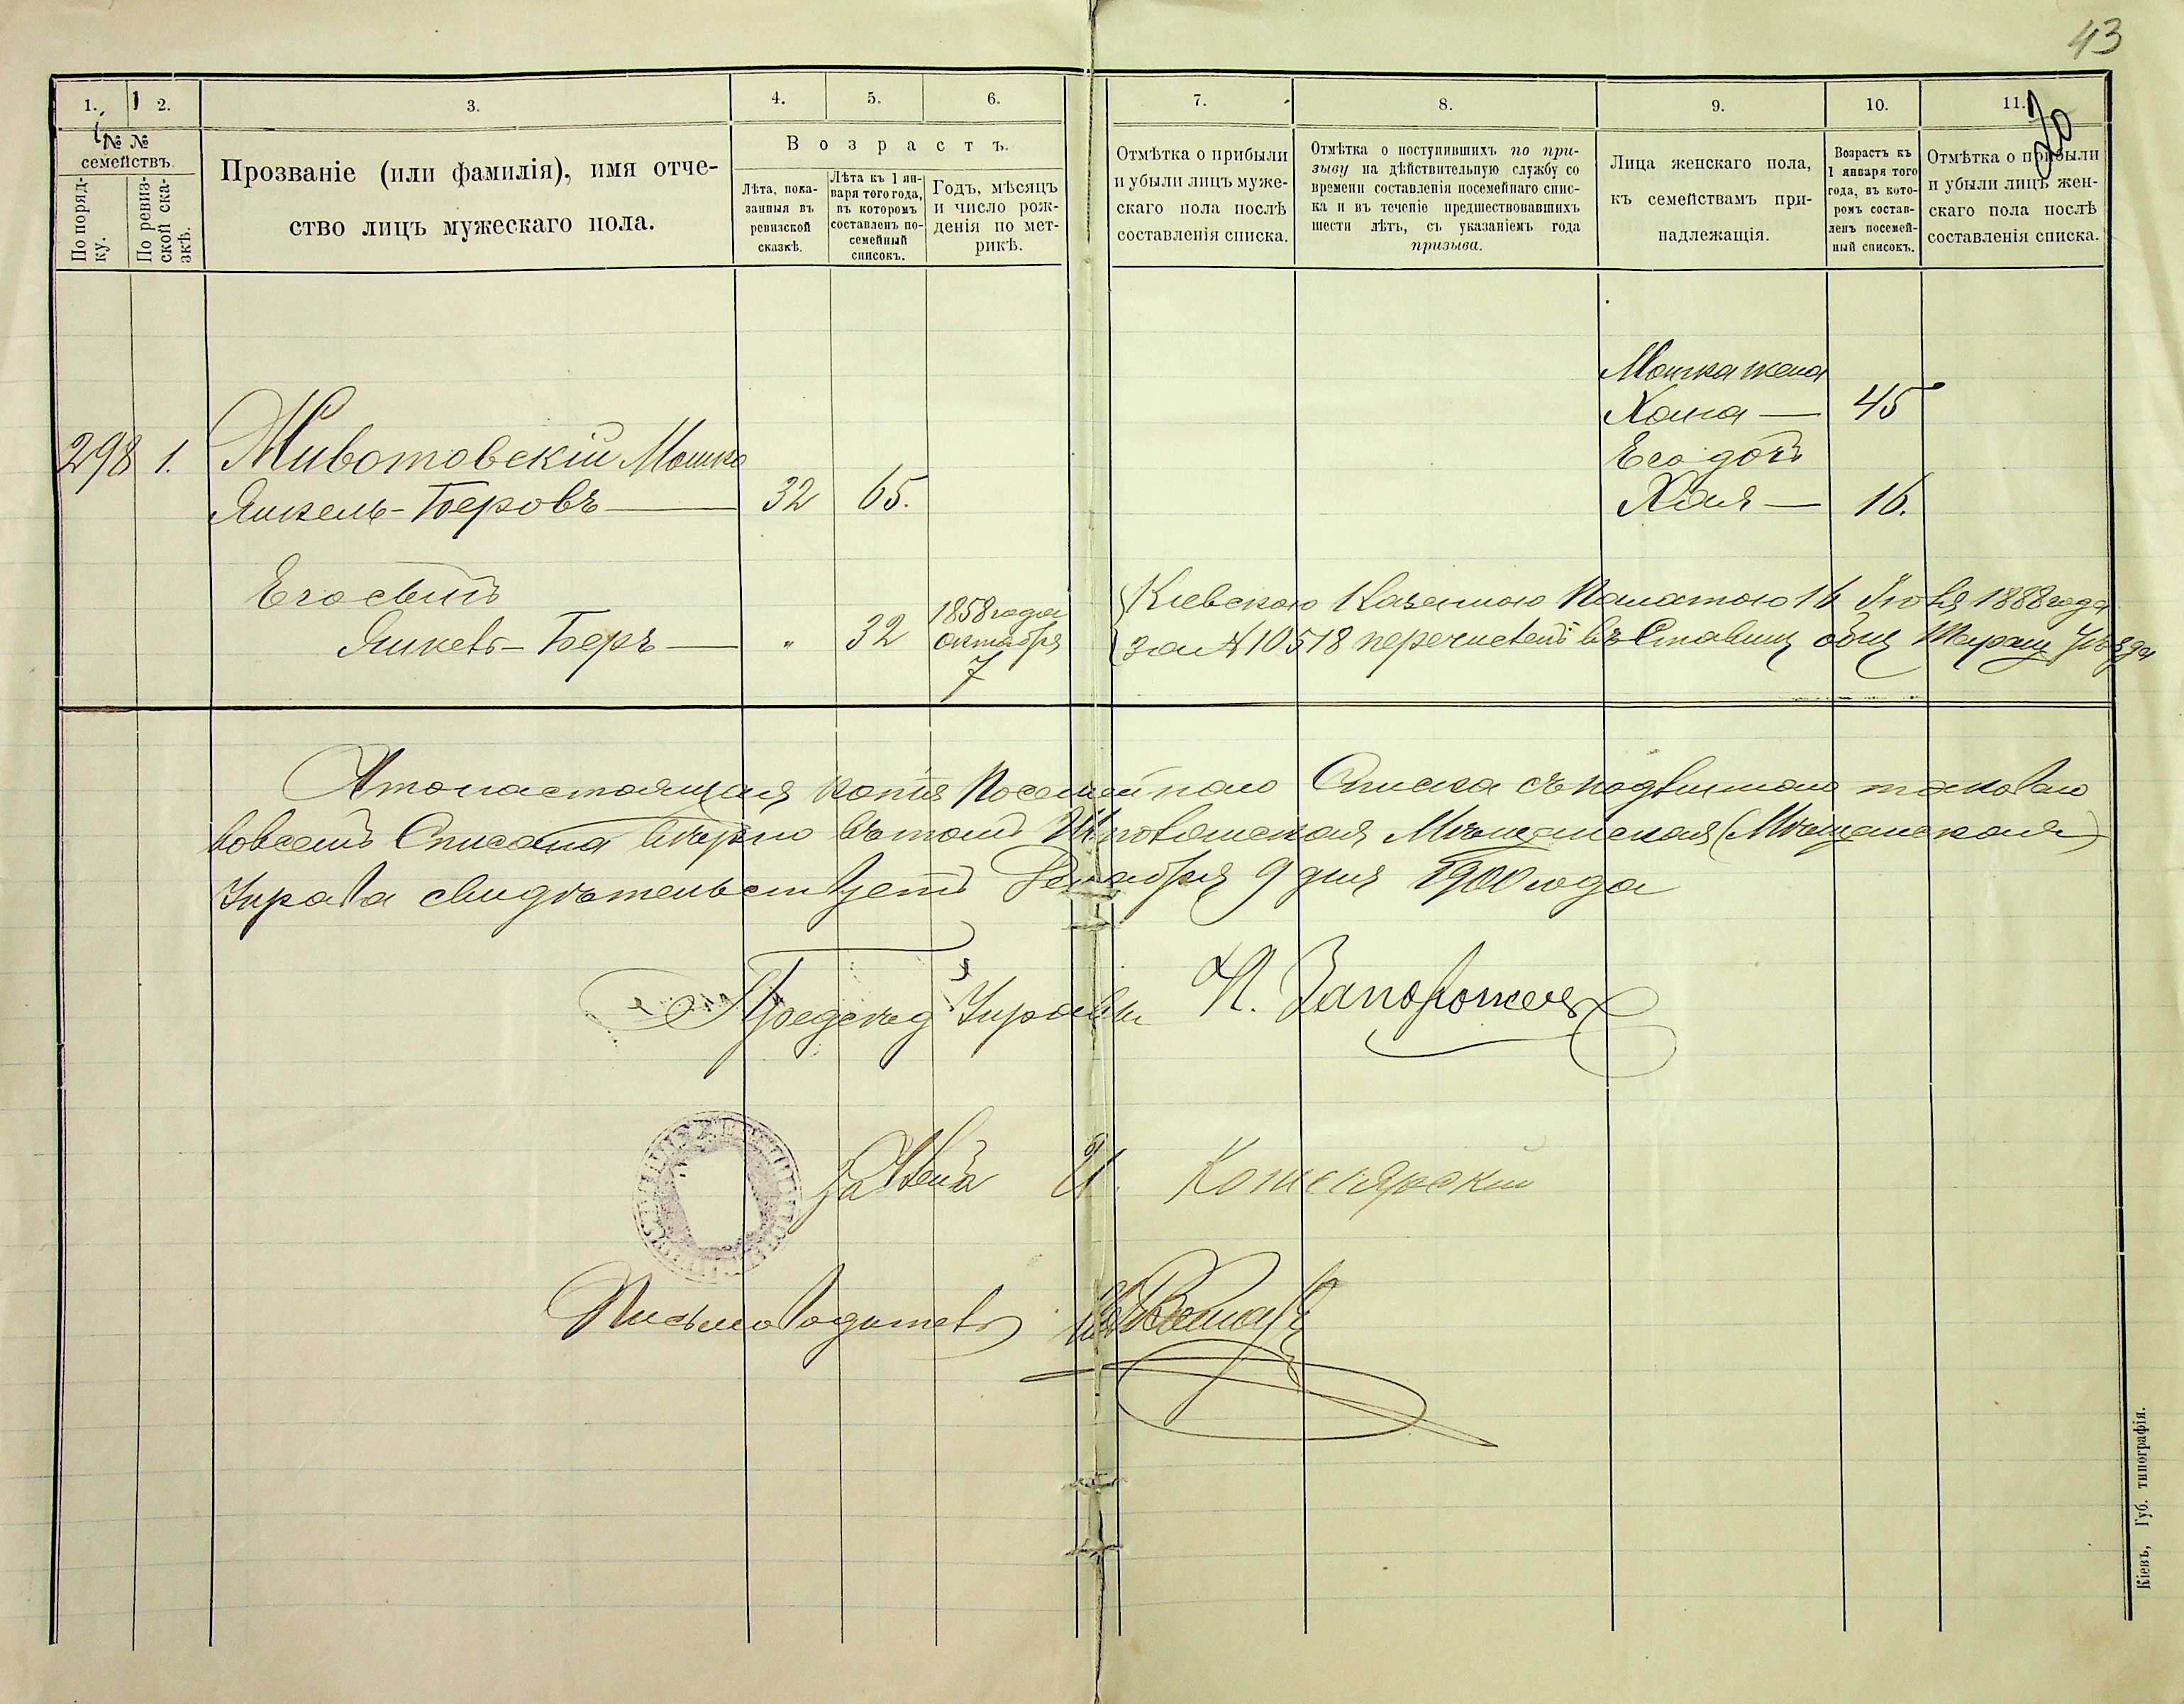 43
20
1. 2. 3. 4. 5. 6. 7. 8. 9. 10. 11.
№ №
семействъ.
По поряд-
ку.
По ревиз-
ской ска-
зкѣ.
Прозваніе (или фамилія), имя отче-
ство лицъ мужескаго пола.
Возрастъ.
Лѣта, пока-
занныя въ
ревизской
сказкѣ.
Лѣта къ 1 ян-
варя того года,
въ которомъ
составленъ по-
семейный
списокъ.
Годъ, мѣсяцъ
и число рож-
денія по мет-
рикѣ.
Отмѣтка о прибыли
и убыли лицъ муже-
скаго пола послѣ
составленія списка.
Отмѣтка о поступившихъ по при-
зыву на дѣйствительную службу со
времени составленія посемейнаго спис-
ка и въ теченіе предшествовавшихъ
шести лѣтъ, съ указаніемъ года
призыва.
Лица женскаго пола,
къ семействамъ при-
надлежащія.
Возрастъ къ
1 января того
года, въ кото-
ромъ состав-
ленъ посемей-
ный списокъ.
Отмѣтка о прибыли
и убыли лицъ жен-
скаго пола послѣ
составленія списка.
298 1. Животовскій Мошко
Янкель-Беровъ — 32 65.
Его сынъ
Янкель-Беръ — " 32 1858 года
октября
7
Кіевскою Казенною Палатою 16 Іюля 1888 года
за № 10518 перечисленъ въ Ставищ общ Таращ Уѣзда
Мошка жена
Хана — 45
Его дочь
Хая — 16.
Что настоящая копія Посемейнаго Списка съ подлиннымъ таковымъ
во всемъ Списана вѣрно въ томъ Мѣщанская (Мѣщанская)
Управа свидѣтельствуетъ Декабря 9 дня 1900 года
Предсѣд Управы Запорожецъ
За Члена И.
Письмоводитель
Кіевъ, Губ. типографія.